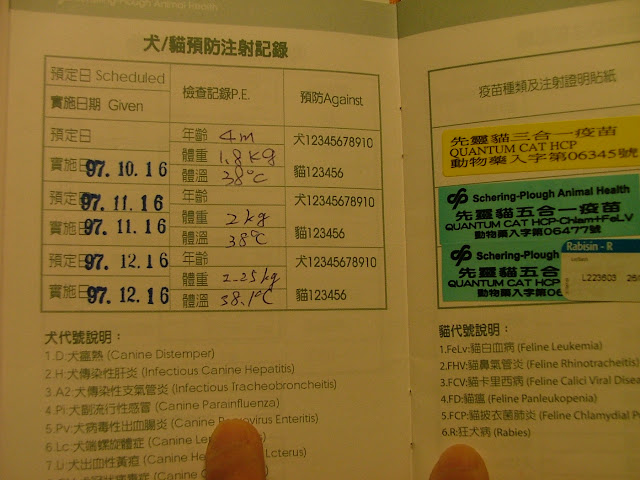 Schering-Plough Animal Health
犬/貓預防注射記錄
預定日 Scheduled
實施日期 Given
檢查記錄P.E.
預防Against
預定日
實施日 97.10.16
年齡 4m
體重 1.8kg
體溫 38°C
犬12345678910
貓123456
預定日 97.11.16
實施日 97.11.16
年齡
體重 2kg
體溫 38°C
犬12345678910
貓123456
預定日 97.12.16
實施日 97.12.16
年齡
體重 2.25kg
體溫 38.1°C
犬12345678910
貓123456
犬代號說明：
1.D:犬瘟熱 (Canine Distemper)
2.H:犬傳染性肝炎 (Infectious Canine Hepatitis)
3.A2:犬傳染性支氣管炎 (Infectious Tracheobroncheitis)
4.Pi:犬副流行性感冒 (Canine Parainfluenza)
5.Pv:犬病毒性出血腸炎 (Canine Parvovirus Enteritis)
6.Lc:犬端螺旋體症 (Canine
7.Li:犬出血性黃疸 (Canine Lcterus)
疫苗種類及注射證明貼紙
先靈貓三合一疫苗
QUANTUM CAT HCP
動物藥入字第06345號
Schering-Plough Animal Health
先靈貓五合一疫苗
QUANTUM CAT HCP-Chlam+FeLV
動物藥入字第06477號
Schering-Plough
先靈貓五合
QUANTUM CAT HCP
動物藥入字第06
Rabisin - R
L223603
貓代號說明：
1.FeLv:貓白血病 (Feline Leukemia)
2.FHV:貓鼻氣管炎 (Feline Rhinotracheitis)
3.FCV:貓卡里西病 (Feline Calici Viral Disea
4.FD:貓瘟 (Feline Panleukopenia)
5.FCP:貓披衣菌肺炎 (Feline Chlamydial P
6.R:狂犬病 (Rabies)